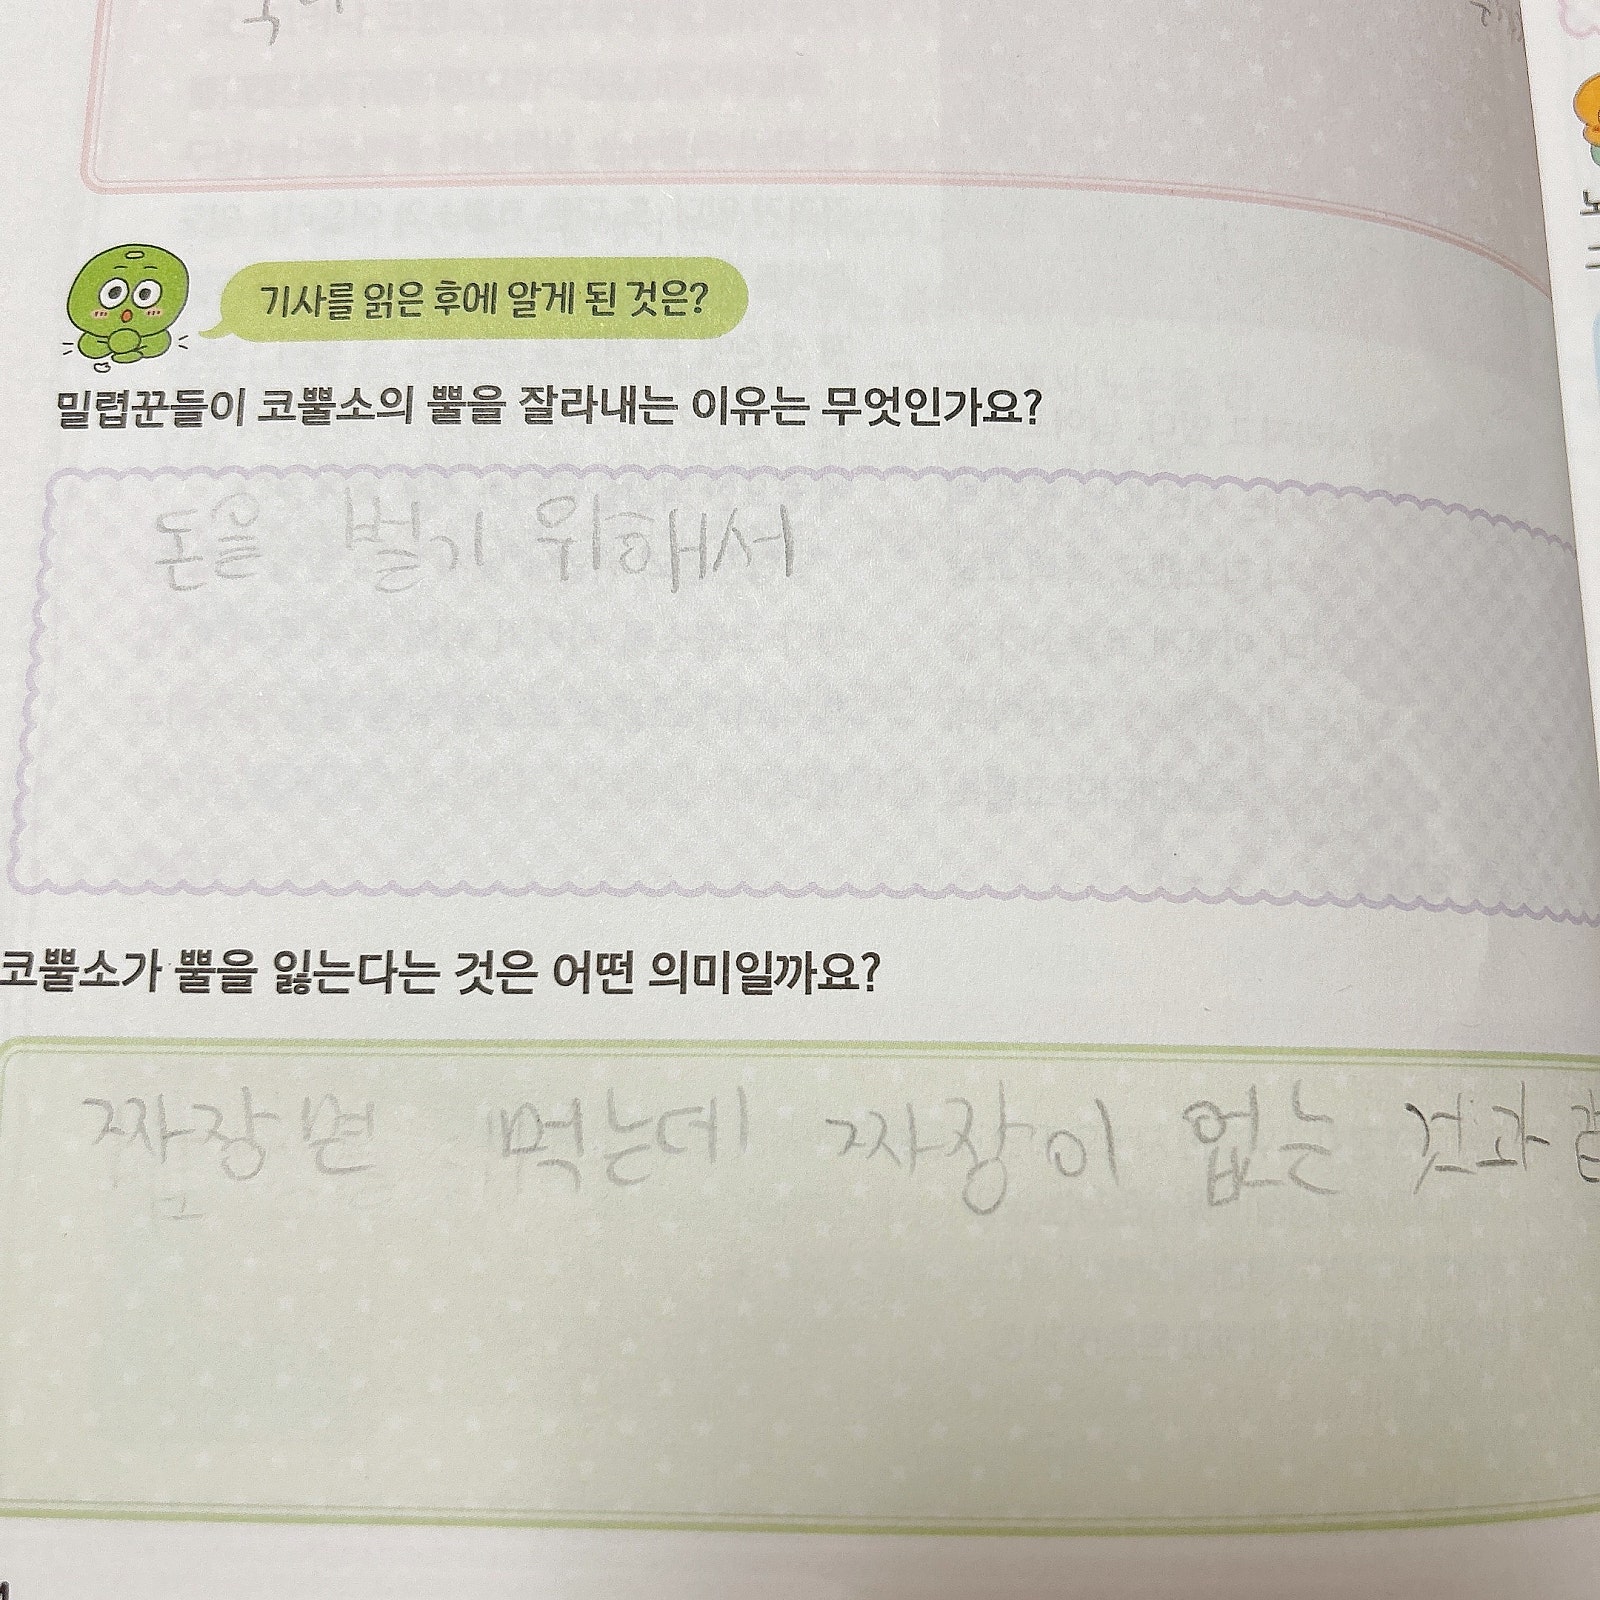 기사를 읽은 후에 알게 된 것은?
밀렵꾼들이 코뿔소의 뿔을 잘라내는 이유는 무엇인가요?
돈을 벌기 위해서
코뿔소가 뿔을 잃는다는 것은 어떤 의미일까요?
짜장면 먹는데 짜장이 없는 것과